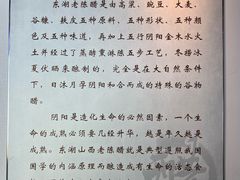 东湖老陈醋是由高粱、豌豆、大麦、
谷糠、麸皮五种原料、五种形状、五种颜
色及五种味道，再加上五行阴阳金木水火
土并经过了蒸酵熏淋陈五步工艺，冬捞冰
夏伏晒来酿制的，完全是在大自然条件
下，日沐月孕阴阳和合而成的特殊的谷物
醋。
阴阳是造化生命的必然因素，一个生
命的成熟必须要几经升华，越是年久越是
成熟。东湖山西老陈醋就是典型遵照我国
国学的内涵原理而酿造成有生命的活态食